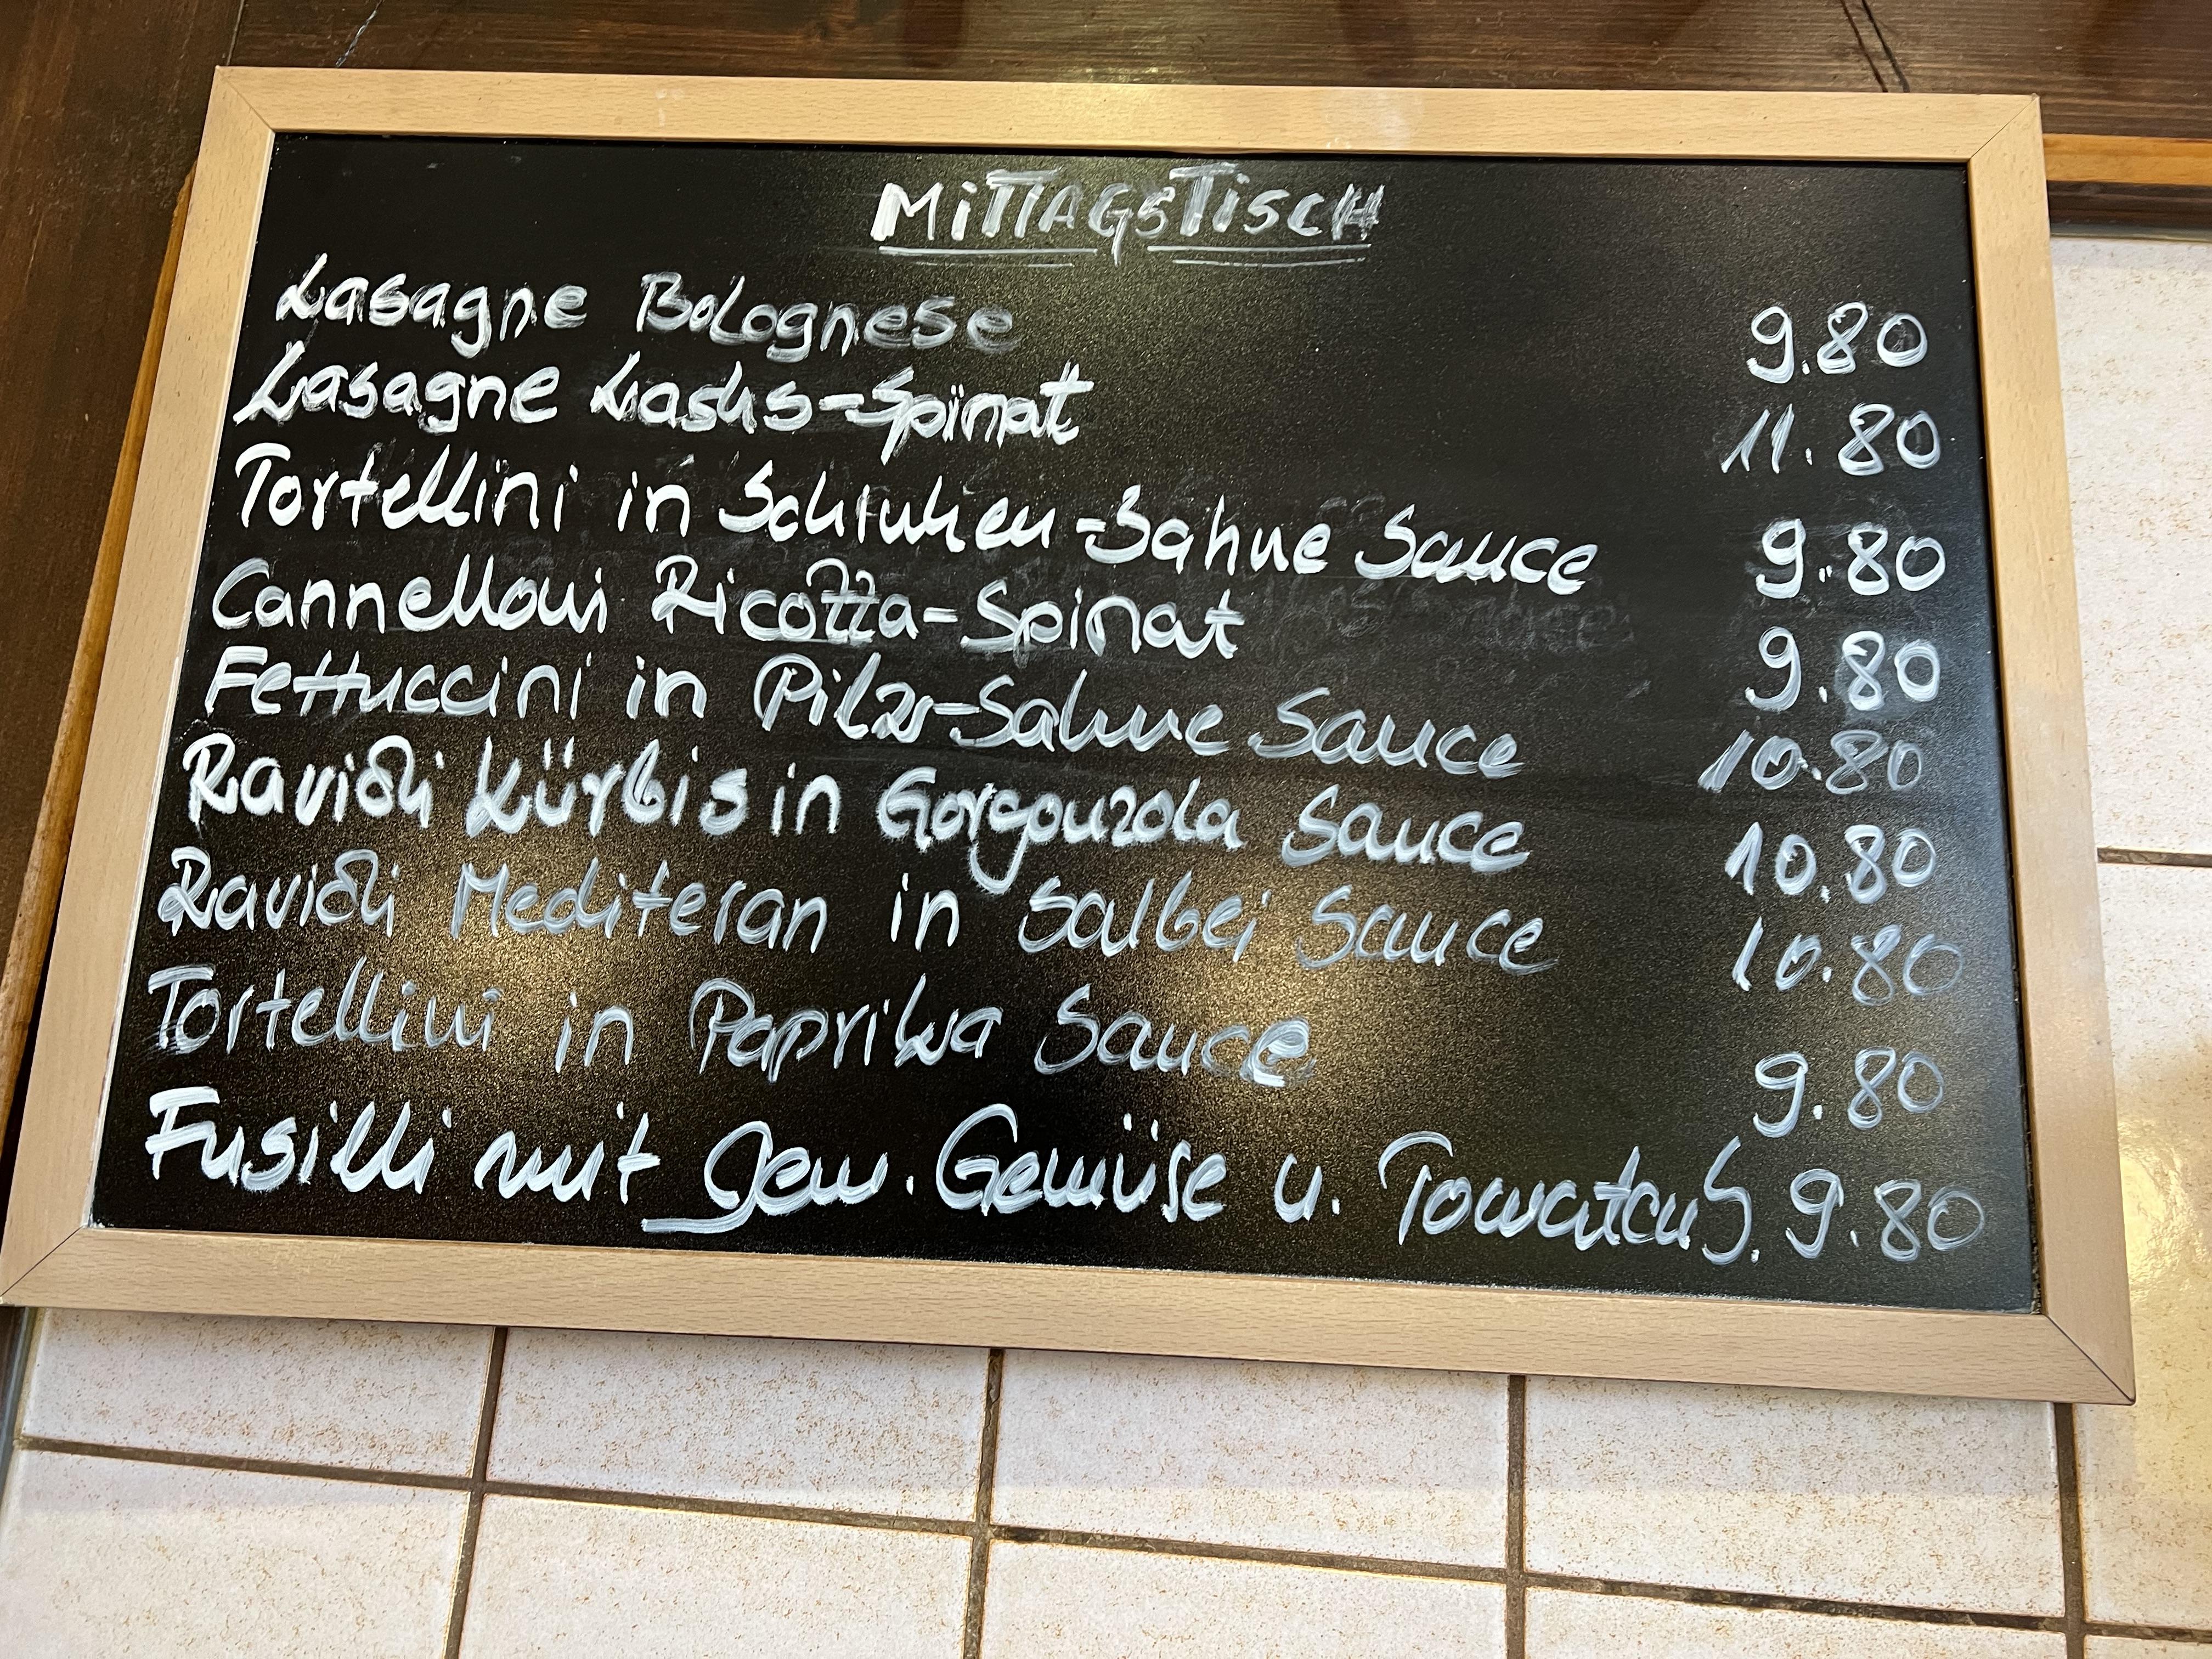 MITTAGSTISCH
Lasagne Bolognese 9.80
Lasagne Lachs-Spinat 11.80
Tortellini in Schinken-Sahne Sauce 9.80
Cannelloni Ricotta-Spinat 9.80
Fettuccini in Pilz-Sahne Sauce 10.80
Ravioli Kürbis in Gorgonzola Sauce 10.80
Ravioli Mediteran in Salbei Sauce 10.80
Tortellini in Paprika Sauce 9.80
Fusilli mit gem. Gemüse u. Tomaten S. 9.80